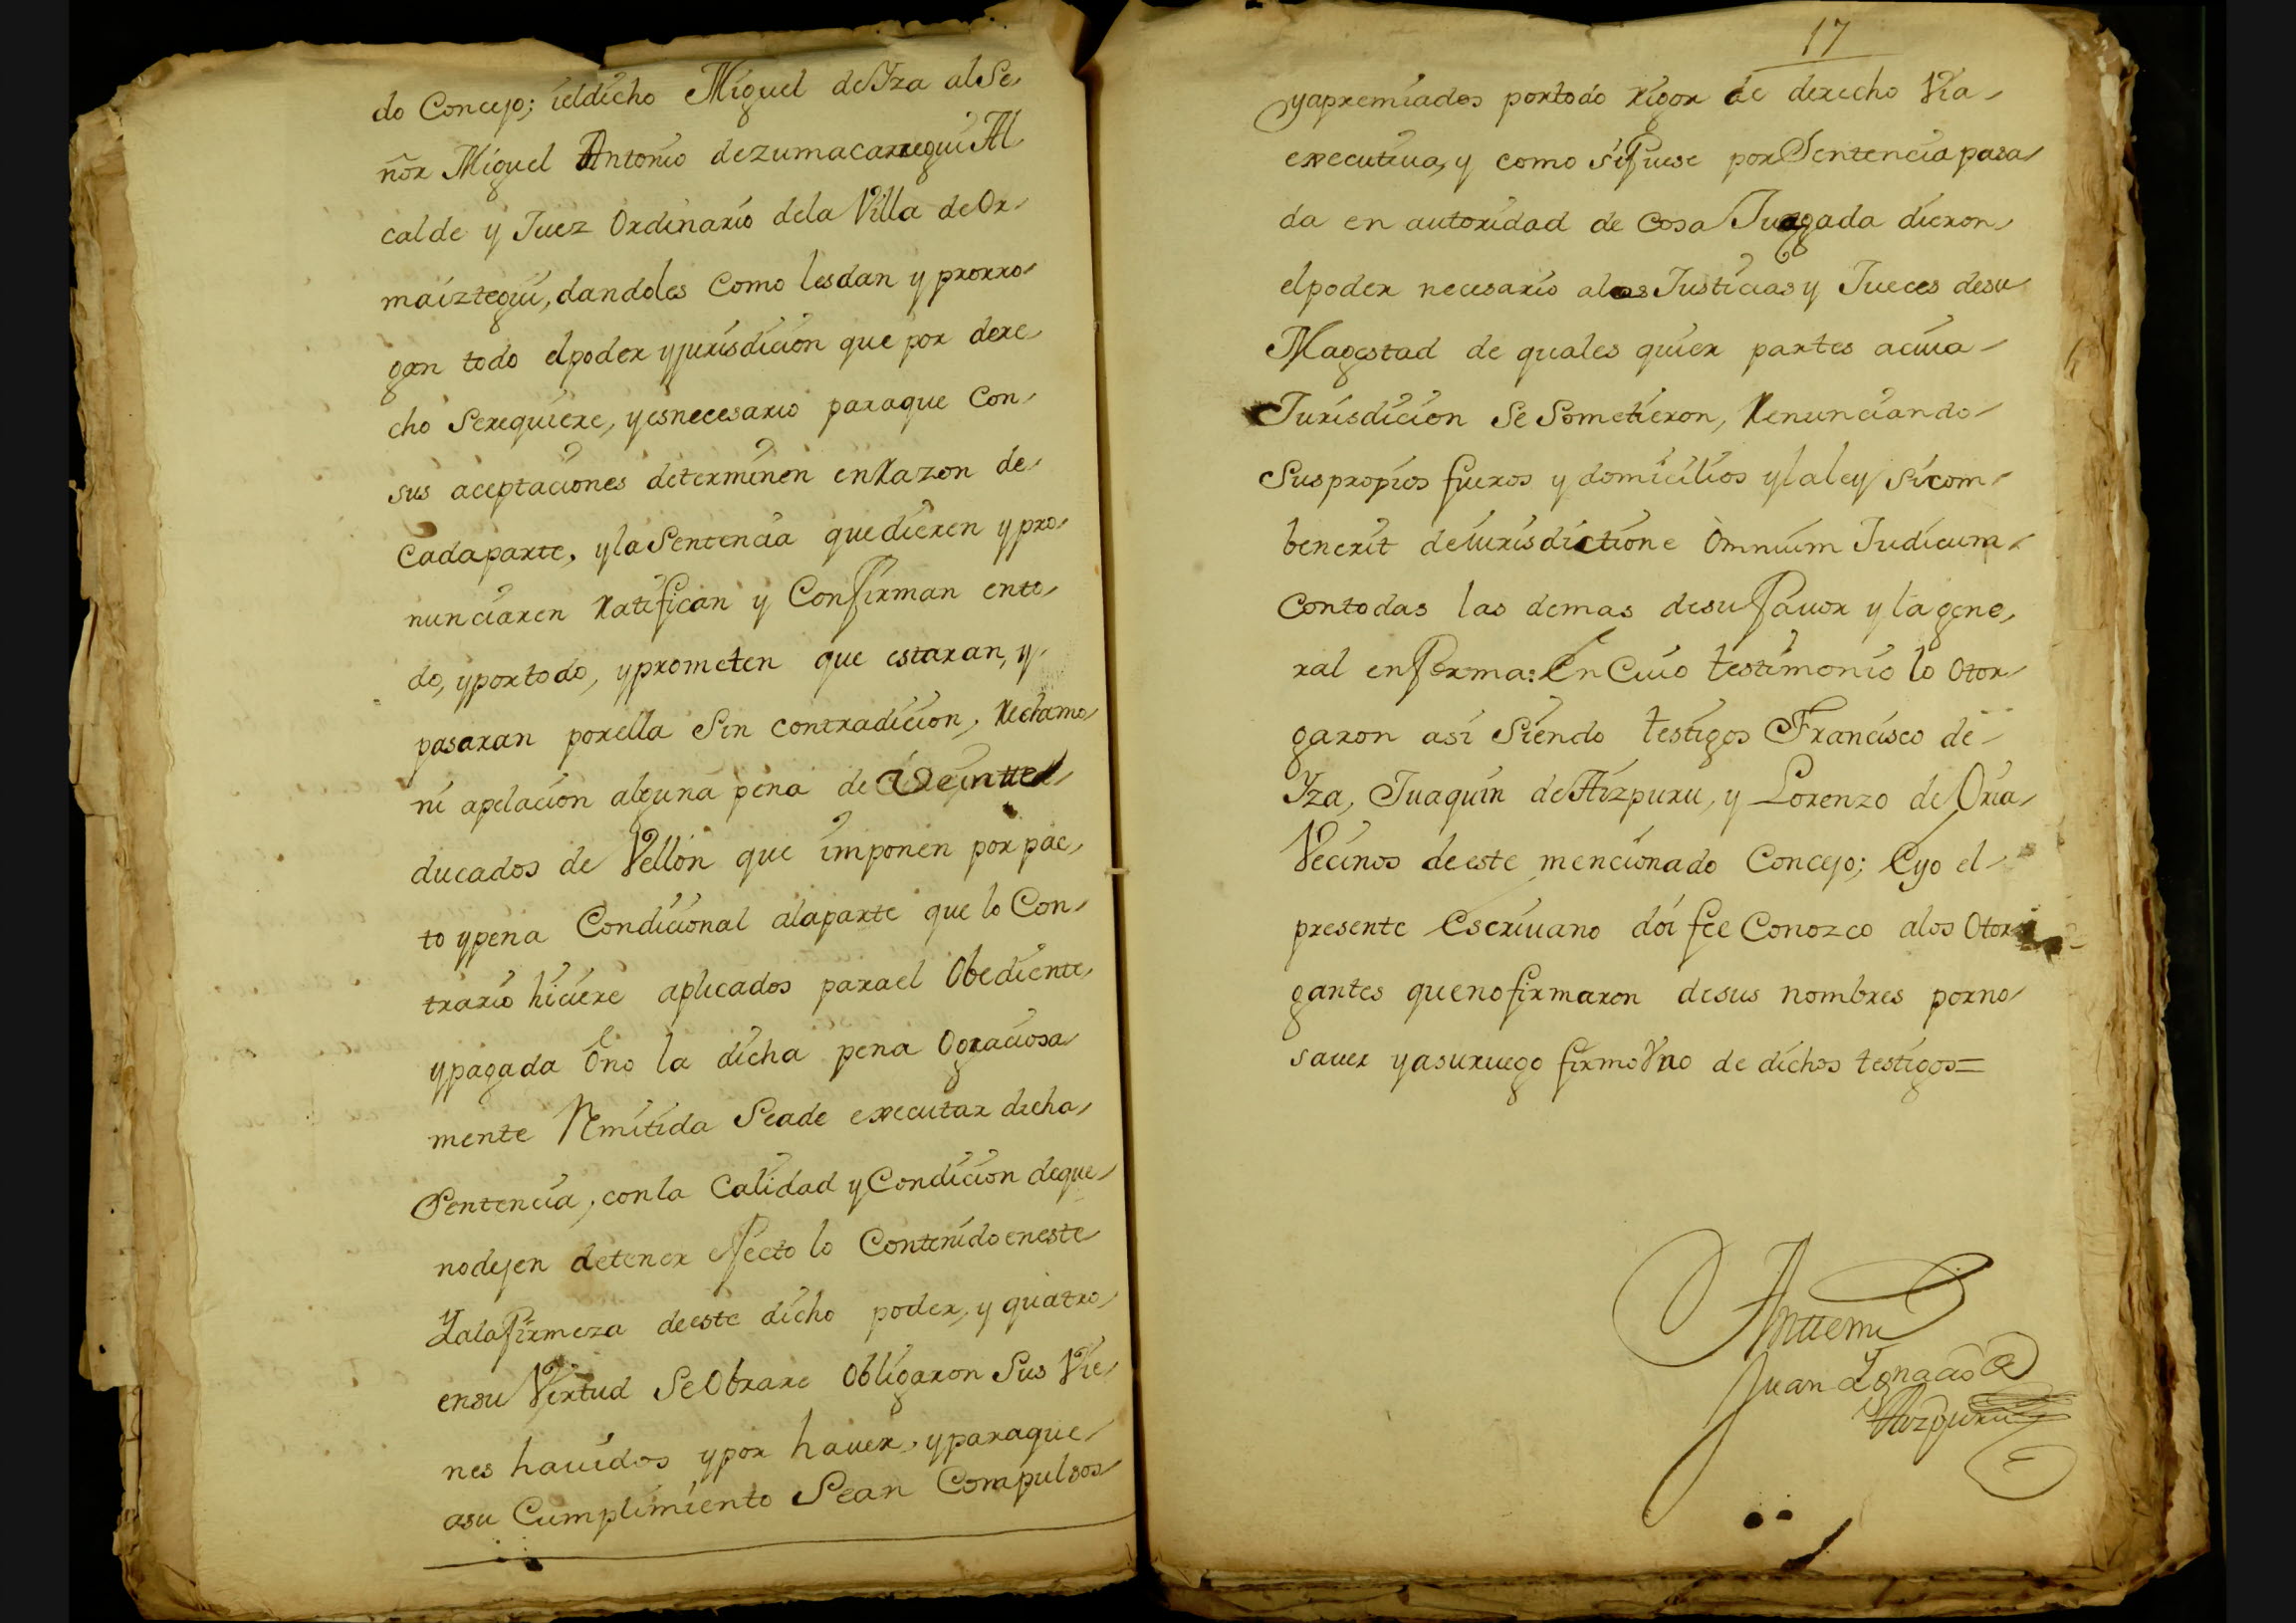 do Concejo; ieldicho Miguel deYza alSe
ñor Miguel Antonio dezumacarregui Al
calde y Juez Ordinario dela Villa deOr
maiztegui, dandoles Como lesdan y prorro
gan todo elpoder yjurisdicion que por dere
cho Serequiere, yesnecesario paraque Con
sus aceptaciones determinen enRazon de
Cadaparte, ylaSentencia quedieren ypro
nunciaren Ratifican y Confirman ento
do, yportodo, yprometen que estaran, y
pasaran porella Sin contradicion, Rechamo
ni apelacion alguna pena de Veintte
ducados de Vellon que imponen por pac
to ypena Condicional alaparte que lo Con
trario hiciere aplicados parael Obediente
ypagada Ono la dicha pena Ograciosa
mente Remitida Seade executar dicha
Sentencia, conla Calidad yCondicion deque
nodejen detener efecto lo Contenido eneste
Yalafirmeza deeste dicho poder, y quatro
ensu Virtud SeObrare Obligaron Sus Vie
nes havidos ypor haver, yparaque
asu Cumplimiento Sean Compulsos
17
yapremiados portodo rigor de derecho Via
executiva, y como sifuese porSentencia pasa
da en autoridad de Cosa Juzgada dieron
elpoder necesario alas Justicias y Jueces desu
Magestad de quales quier partes acuia
Jurisdicion Se Sometieron, Renunciando
Suspropios fueros y domicilios ylaley sicom
benerit deiurisdictione Omnium Judicum
Contodas las demas desufavor y lagene
ral enforma: En Cuio testimonio lo Otor
garon asi Siendo testigos Francisco de
Yza, Juaquin deAizpuru, y Lorenzo de Oria
Vecinos deeste mencionado Concejo; Eyo el
presente Escrivano doi fee Conozco alos Otor
gantes quenofirmaron desus nombres porno
saver yasuruego firmoUno de dichos testigos=
Antemi
Juan Ignacio de
Aizpuru